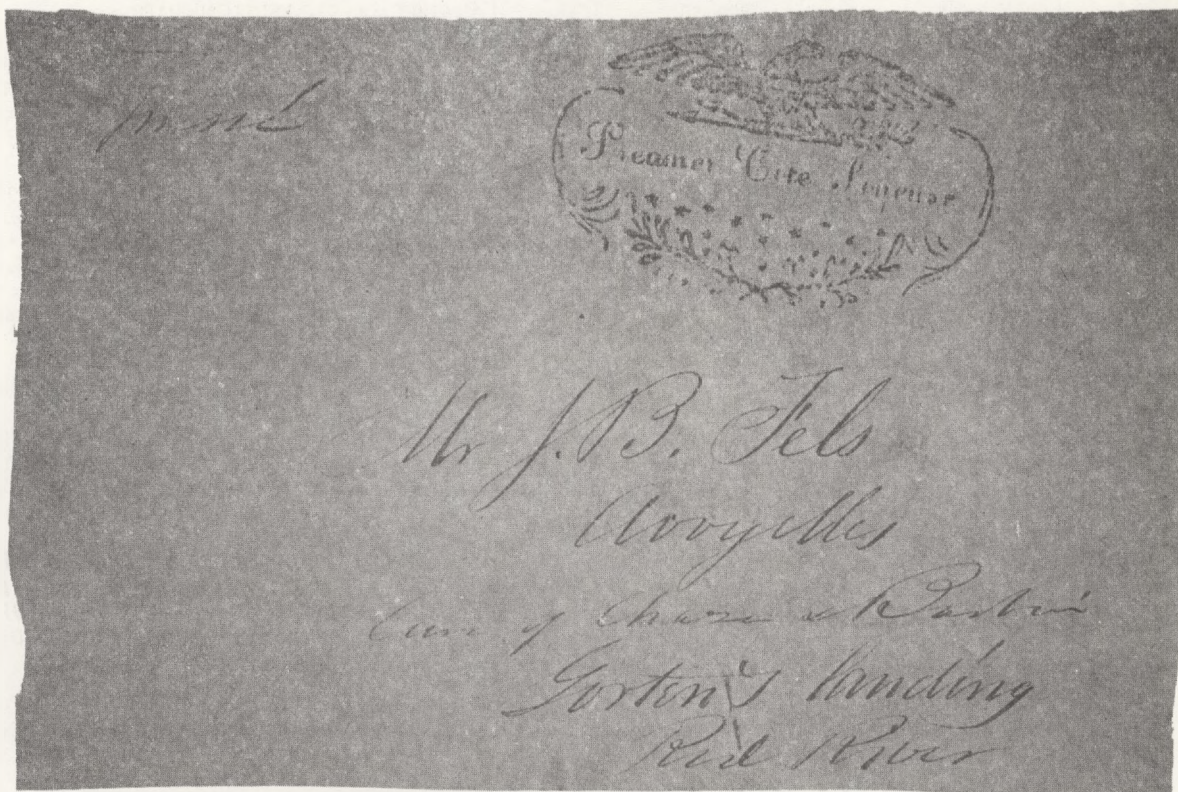 Steamer Cote Joyeuse
Mr J. B. Fels
Avoyelles
Care of &
Gorton's landing
Red River